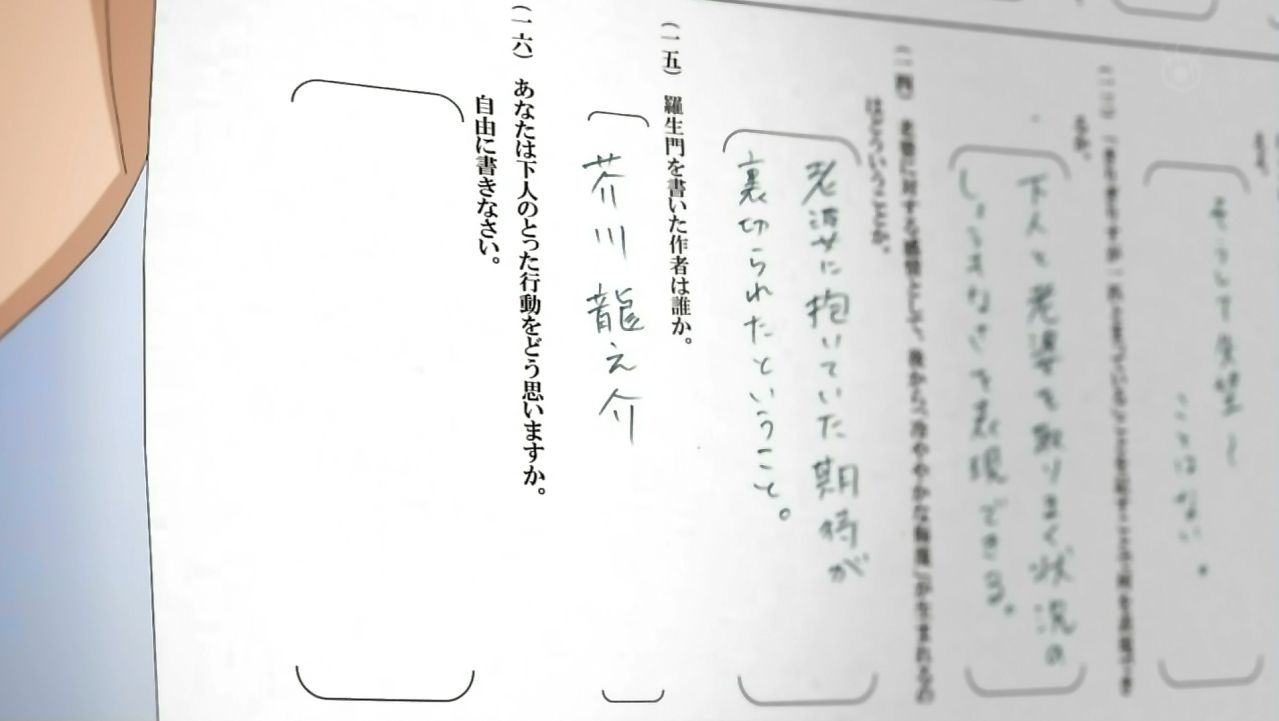 そうして失望し
ことはない。
るか。
下人と老婆を取りまく状況の
しょうもなさを表現できる。
（一四） 老婆に対する感情として、後から「冷ややかな侮蔑」が生まれるの
はどういうことか。
老婆に抱いていた期待が
裏切られたということ。
（一五） 羅生門を書いた作者は誰か。
芥川龍之介
（一六） あなたは下人のとった行動をどう思いますか。
自由に書きなさい。